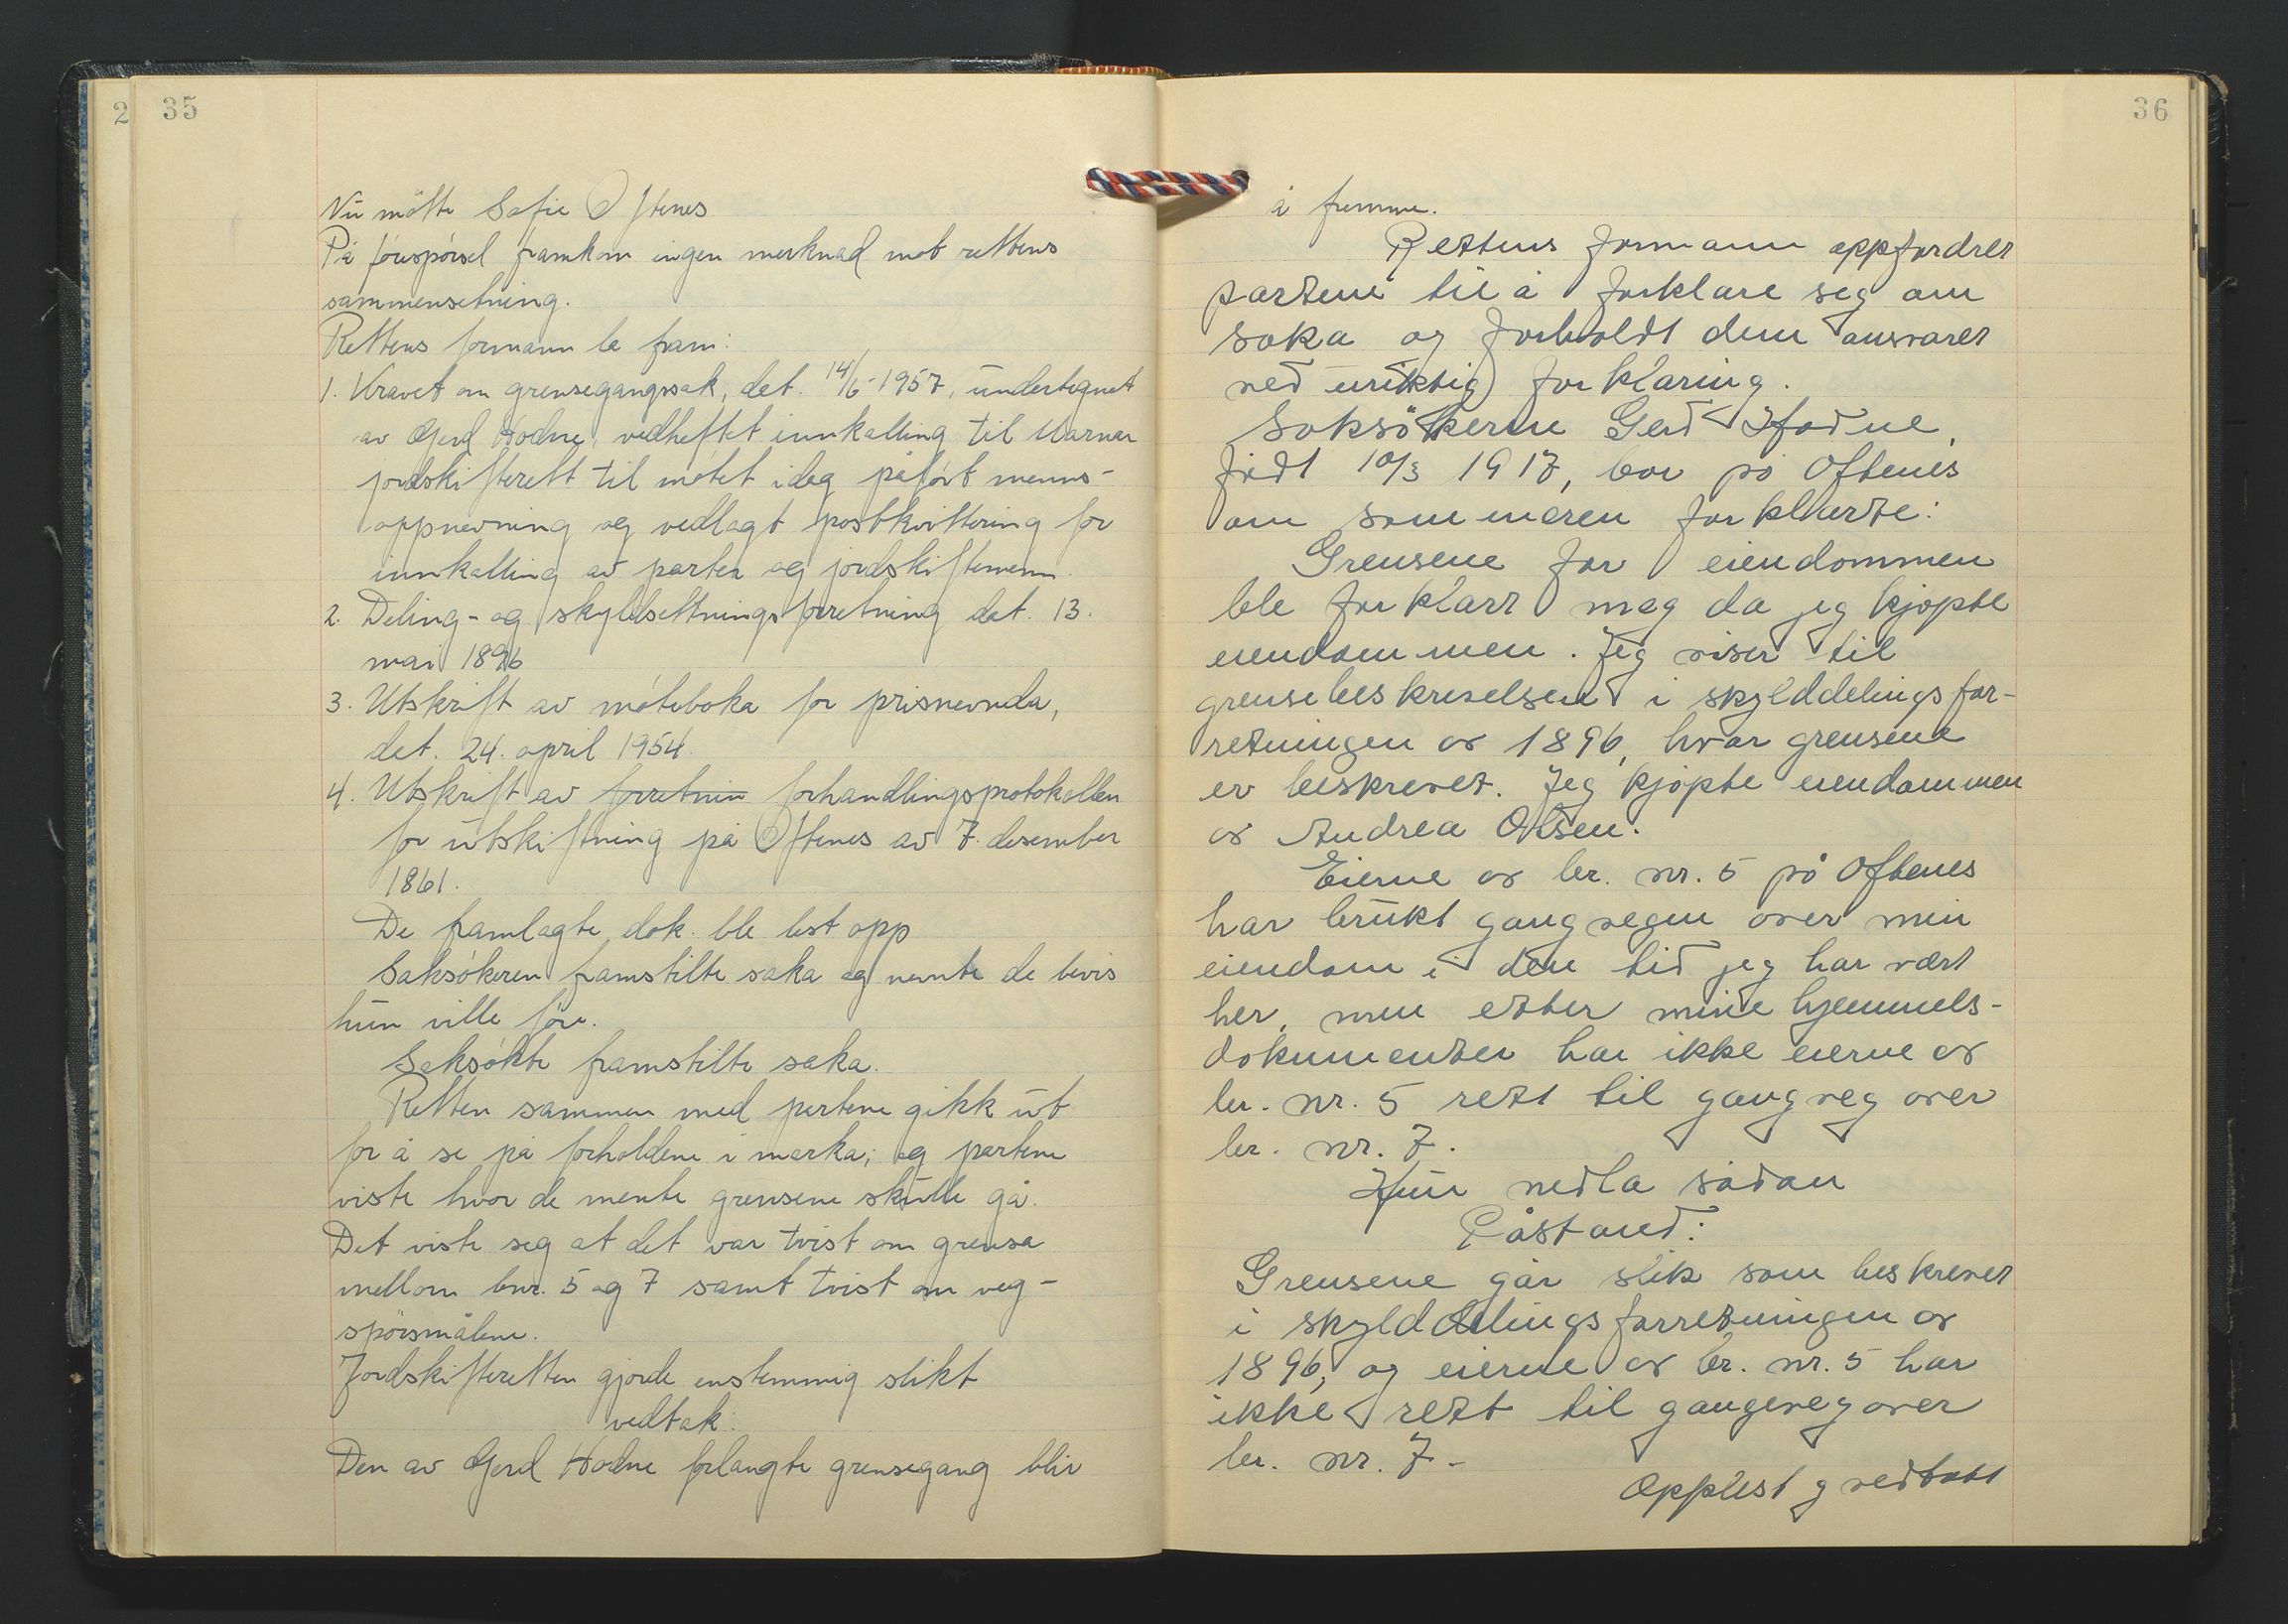 2
35
Nu møtte Sofie Oftenes
På forespørsel framkom ingen merknad mot rettens
sammensetning.
Rettens formann la fram:
1. Kravet om grensegangssak, dat. 14/6-1957, undertegnet
av Gerd Hodne, vedheftet innkalling til Marnar
jordskifterett til møtet idag påført menns-
oppnevning og vedlagt postkvittering for
innkalling av parter og jordskiftemenn.
2. Deling- og skyldsettningsforretning dat. 13.
mai 1896
3. Utskrift av møteboka for prisnevnda,
dat. 24. april 1954.
4. Utskrift av forretnin forhandlingsprotokollen
for utskiftning på Oftenes av 7. desember
1861.
De framlagte dok. ble lest opp
Saksøkeren framstilte saka og nevnte de bevis
hun ville føre.
Saksøkte framstilte saka.
Retten sammen med partene gikk ut
for å se på forholdene i marka; og partene
viste hvor de mente grensene skulle gå.
Det viste seg at det var tvist om grensa
mellom bnr. 5 og 7 samt tvist om veg-
spørsmålene.
Jordskifteretten gjorde enstemmig slikt
vedtak:
Den av Gerd Hodne forlangte grensegang blir
36
å fremme.
Rettens formann oppfordret
partene til å forklare seg om
saka og forholdt dem ansvaret
ved uriktig forklaring.
Saksøkeren Gerd Hodne,
født 10/3 1917, bor på Oftenes
om sommeren forklarte:
Grensene for eiendommen
ble forklart meg da jeg kjøpte
eiendommen. Jeg viser til
grensebeskrivelsen i skylddelingsfor-
retningen av 1896, hvor grensene
er beskrevet. Jeg kjøpte eiendommen
av Andrea Olsen.
Eierne av br. nr. 5 på Oftenes
har brukt gangvegen over min
eiendom i den tid jeg har vært
her, men etter mine hjemmels-
dokumenter har ikke eierne av
br. nr. 5 rett til gangveg over
br. nr. 7.
Hun nedla sådan
Påstand:
Grensene går slik som beskrevet
i skylddelingsforretningen av
1896, og eierne av br. nr. 5 har
ikke rett til gangeveg over
br. nr. 7.-
Opplest g vedtatt